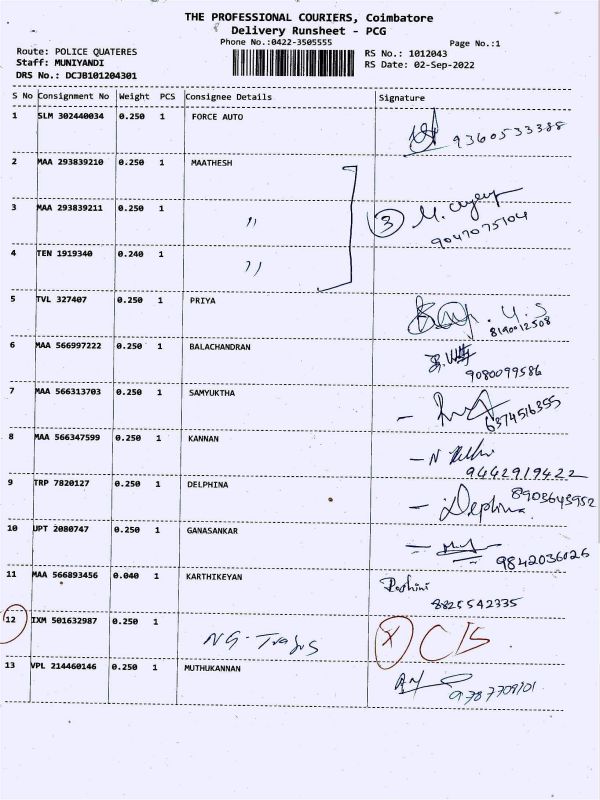 THE PROFESSIONAL COURIERS, Coimbatore
Delivery Runsheet - PCG
Phone No.:0422-3505555
Page No.:1
Route: POLICE QUATERES
RS No.: 1012043
Staff: MUNIYANDI
RS Date: 02-Sep-2022
DRS No.: DCJB101204301
S No Consignment No Weight PCS Consignee Details Signature
1 SLM 302440034 0.250 1 FORCE AUTO
9360533388
2 MAA 293839210 0.250 1 MAATHESH
3 MAA 293839211 0.250 1 " 3 M.
9047075104
4 TEN 1919340 0.240 1 "
5 TVL 327407 0.250 1 PRIYA
8190012508
6 MAA 566997222 0.250 1 BALACHANDRAN
9080099586
7 MAA 566313703 0.250 1 SAMYUKTHA
6374516355
8 MAA 566347599 0.250 1 KANNAN
9442919422
9 TRP 7820127 0.250 1 DELPHINA
8903643952
Dephina
10 UPT 2080747 0.250 1 GANASANKAR
9842036026
11 MAA 566893456 0.040 1 KARTHIKEYAN Roshini
8825542335
12 IXM 501632987 0.250 1
NG-Traders X C/S
13 VPL 214460146 0.250 1 MUTHUKANNAN
9787709101